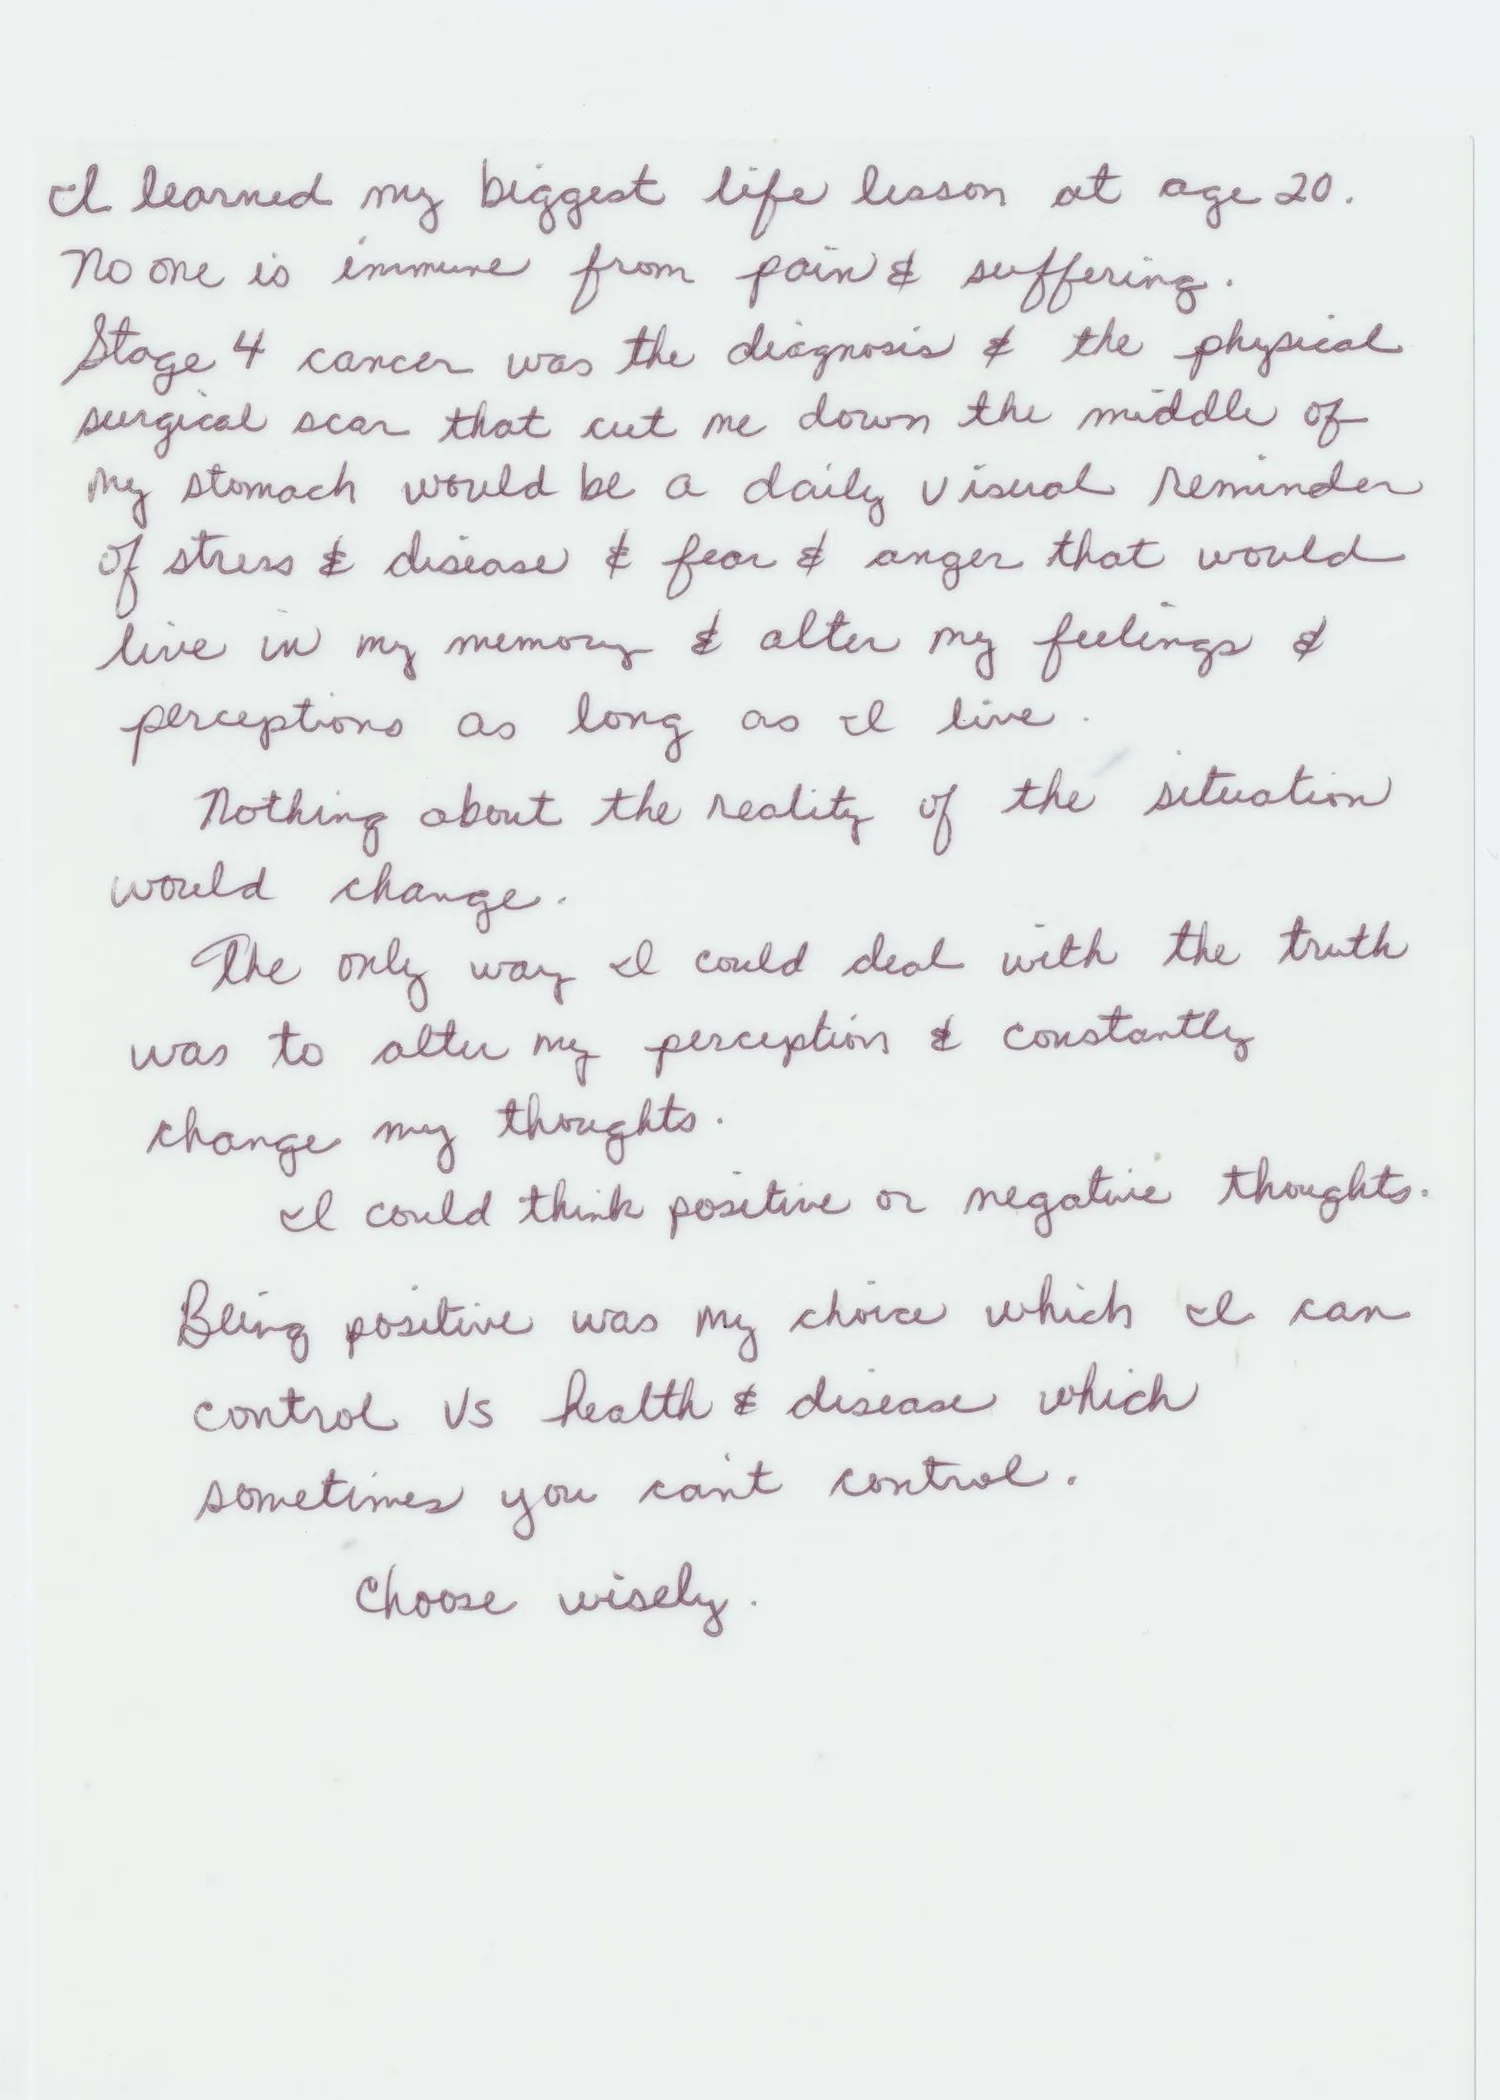 I learned my biggest life lesson at age 20.
No one is immune from pain & suffering.
Stage 4 cancer was the diagnosis & the physical
surgical scar that cut me down the middle of
my stomach would be a daily visual reminder
of stress & disease & fear & anger that would
live in my memory & alter my feelings &
perceptions as long as I live.
Nothing about the reality of the situation
would change.
The only way I could deal with the truth
was to alter my perception & constantly
change my thoughts.
I could think positive or negative thoughts.
Being positive was my choice which I can
control vs health & disease which
sometimes you can't control.
Choose wisely.